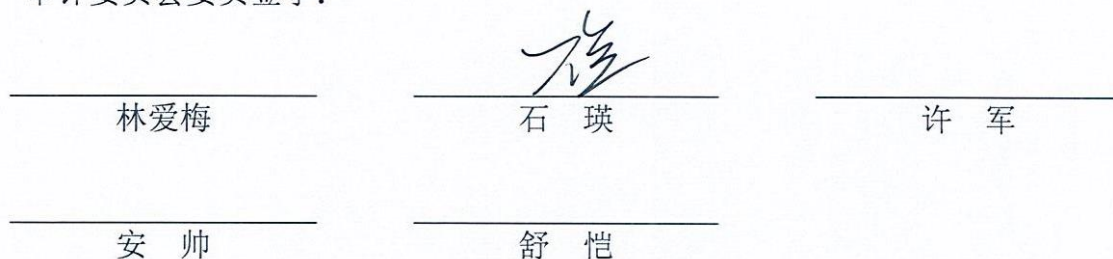 石瑛
林爱梅 石 瑛 许 军
安 帅 舒 恺